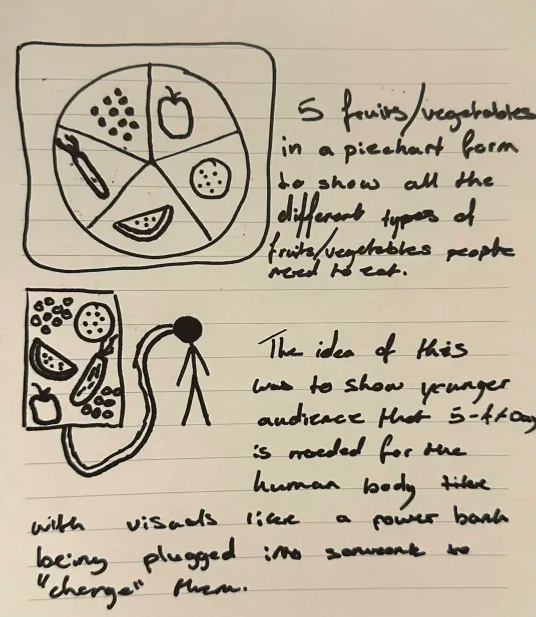 5 fruits/vegetables
in a piechart form
to show all the
different types of
fruits/vegetables people
need to eat.
The idea of this
was to show younger
audience that 5-A-Day
is needed for the
human body like
with visuals like a power bank
being plugged into someone to
"charge" them.